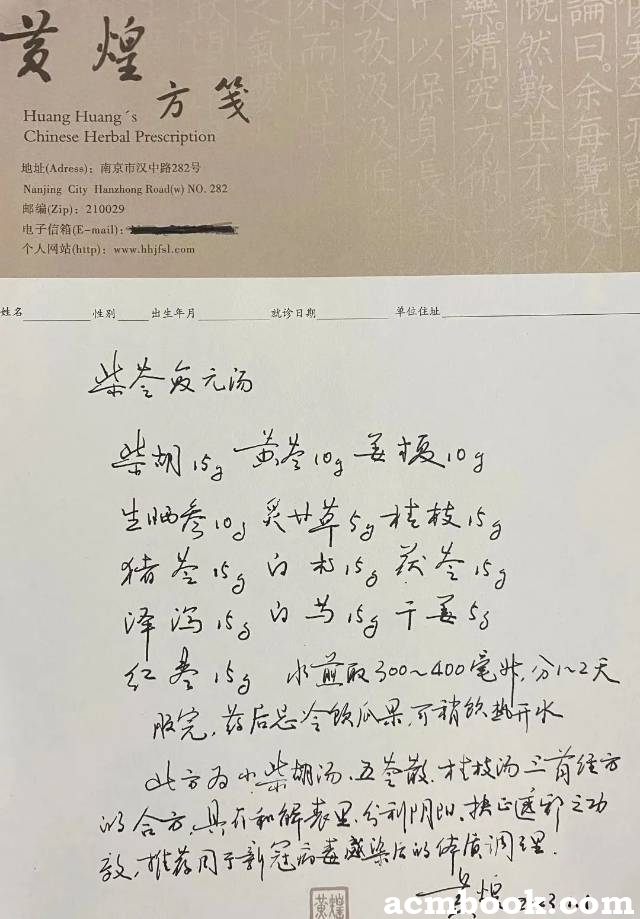 黄煌
方笺
Huang Huang´s
Chinese Herbal Prescription
地址(Adress)：南京市汉中路282号
Nanjing City Hanzhong Road(w) NO. 282
邮编(Zip)：210029
电子信箱(E-mail)：
个人网站(http)：www.hhjfsl.com
論曰。余每覽越人
慨然歎其才秀也
藥。精究方
中以保身長
孜孜汲汲惟
姓名 性别 出生年月 就诊日期 单位住址
柴苓复元汤
柴胡15g 黄芩10g 姜半夏10g
生晒参10g 炙甘草5g 桂枝15g
猪苓15g 白术15g 茯苓15g
泽泻15g 白芍15g 干姜5g
红枣15g 水煎取300~400毫升，分1~2天
服完，药后忌冷饮瓜果，可稍饮热开水
此方为小柴胡汤、五苓散、桂枝汤三首经方
的合方，具有和解表里、分利阴阳、扶正透邪之功
效，推荐用于新冠病毒感染后的体质调理.
黄煌 2023.1.1
黄煌
acmbook.com